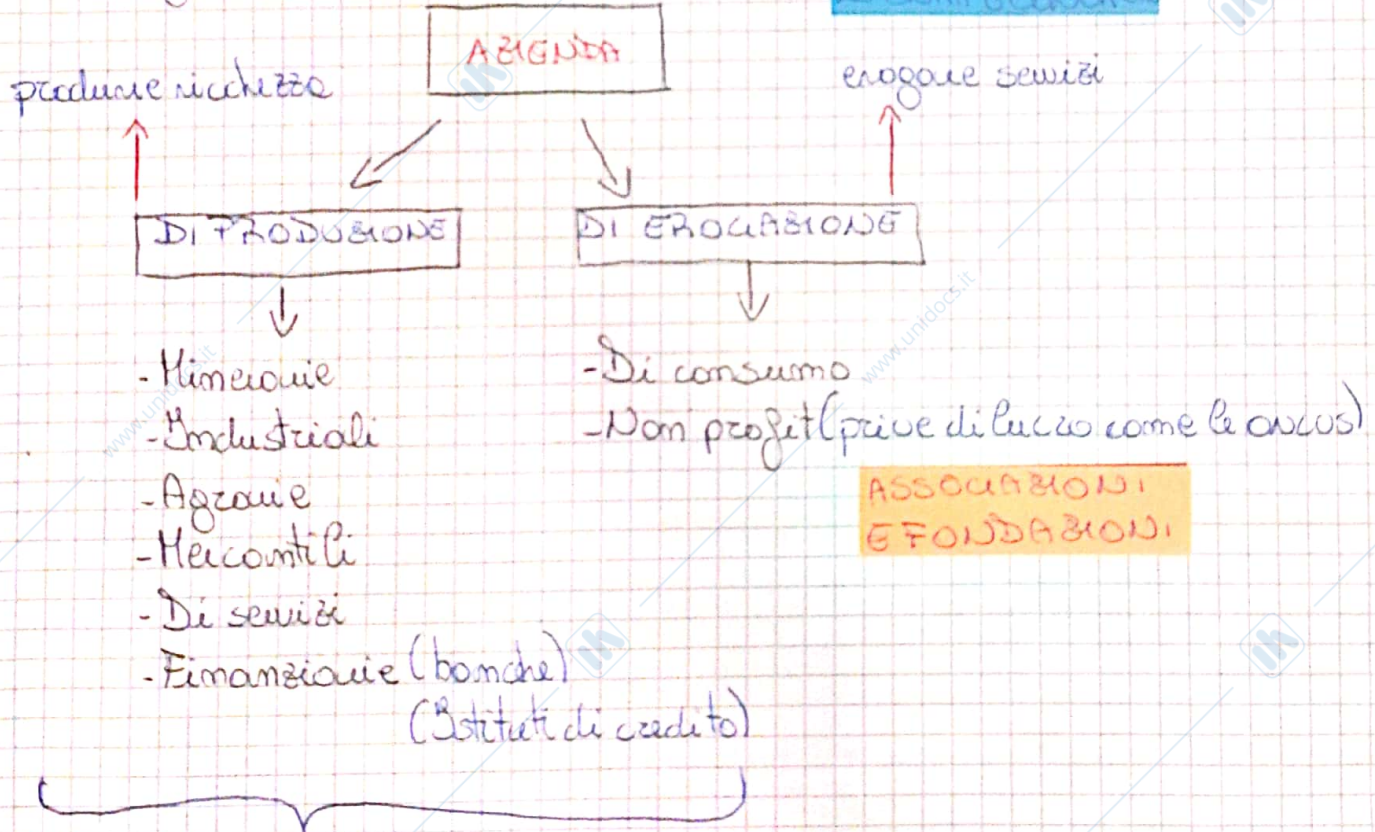 AZIENDA
produrre ricchezza
erogare servizi
DI PRODUZIONE
DI EROGAZIONE
- Minerarie
- Industriali
- Agrarie
- Mercantili
- Di servizi
- Finanziarie (banche)
(Istituti di credito)
- Di consumo
- Non profit (prive di lucro come le ONLUS)
ASSOCIAZIONI
E FONDAZIONI
www.unidocs.it
www.unidocs.it